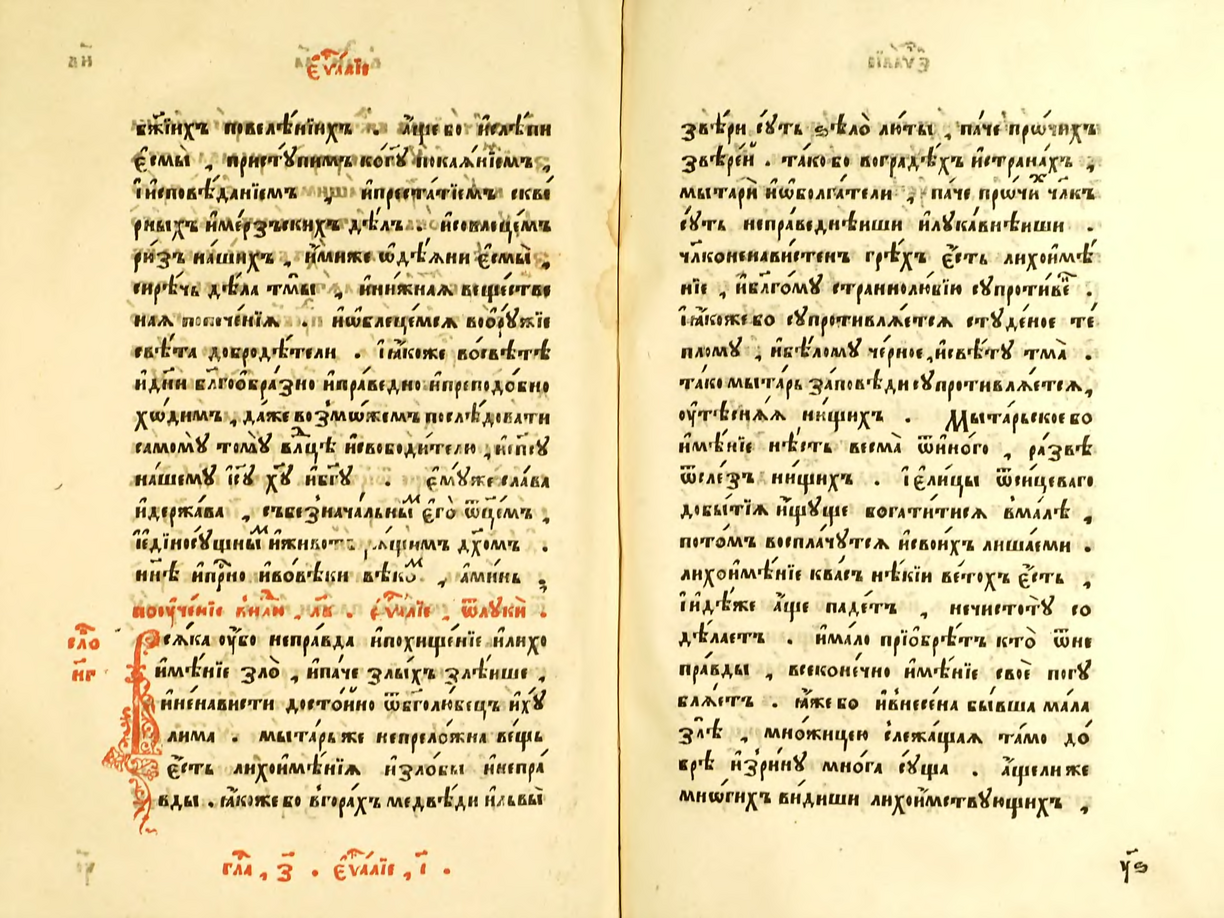 є҆ѵⷢ҇лїе
бж҃їихъ повелѣ́нїихъ . а҆́ще бо и҆слѣ́пи
є҆смы̀ , присту́пимъ кбг҃ꙋ покаѧ́нїемъ ,
і҆и҆сповѣ́данїемъ , и҆преста́тїемъ скве́
рныхъ и҆ме́рзъскихъ дѣ́лъ . и҆совлеце́мъ
ри́зъ на́шихъ , и҆́миже ѡ҆дѣ́ѧни є҆смы̀ ,
сирѣ́чь дѣ́ла тмы̀ , и҆ни́жнѧѧ веще́ствє
наѧ попече́нїѧ . и҆ѡ҆блеце́мсѧ воѻрꙋ́жїе
свѣ́та добродѣ́тели . і҆ꙗ҆́коже во́свѣтѣ
и҆дни̑ блг҃оѻбра́зно и҆пра́ведно и҆преподо́бно
хѡ́димъ , да́же возмѡ́жемъ послѣ́довати
самомꙋ̀ томꙋ̀ влⷣцѣ и҆свободи́телю , и҆сп҃сꙋ
на́шемꙋ і҆с҃ꙋ хⷭ҇ꙋ и҆бг҃ꙋ . є҆мꙋ́же сла́ва
и҆держа́ва , събезнача́льныⷨ є҆гѡ̀ ѻ҆ц҃е́мъ ,
і҆є҆дїносꙋ́щныⷨ и҆живот ѧ́щимъ дх҃омъ .
нн҃ѣ и҆прⷭ҇но и҆во́вѣки вѣко́ⷨ , а҆ми́нь .
поꙋче́нїе внⷣлю , л҃в . є҆ѵⷢ҇лїе , ѿлꙋкѝ .
всѧ́ка ᲂу҆́бо непра́вда и҆похище́нїе и҆лихо
и҆мѣ́нїе зло̀ , и҆па́че злы́хъ злѣ́ише ,
и҆не́нависти досто́йно ѿбг҃олю́бецъ и҆хꙋ
ли́ма . мы́тарь же непрело́жна ве́щь
є҆́сть лихои҆мѣ́нїѧ и҆зло́бы и҆непра́
вды . ꙗ҆́коже бо вгора́хъ медвѣ́ди и҆львы̀
сло́
н҃г
глⷡ҇а , з҃ . є҆ѵⷢ҇лїе , і҃ .
звѣ́ри сꙋ́ть ѕѣ́ло лю́ты , па́че прѡ́чихъ
звѣре́й . та́ко бо воградѣ́хъ и҆страна́хъ ,
мытарѝ и҆ѡ҆болга́тели , па́че прѡ́чиⷯ чл҃къ
сꙋ́ть непра́веднѣиши и҆лꙋка́внѣиши .
чл҃коненави́стенъ грѣ́хъ є҆́сть лихои҆мѣ́
нїе , и҆блг҃о́мꙋ страннолю́бїю сꙋпроти́веⷩ .
І҆ꙗ҆́коже бо сꙋпротивлѧ́етсѧ стꙋде́ное те́
пломꙋ , и҆бѣ́ломꙋ че́рное , и҆свѣ́тꙋ тма̀ .
та́ко мы́тарь за́повѣди сꙋпротивлѧ́етсѧ ,
ᲂу҆тѣснѧ́ѧ ни́щихъ . Мы́тарьское бо
и҆мѣ́нїе нѣ́сть весма̀ ѿи҆но́го , ра́звѣ
ѿсле́зъ ни́щихъ . і҆є҆ли́цы ѿси́цеваго
добы́тїѧ и҆́щꙋще богати́тисѧ вма́лѣ ,
пото́мъ воспла́чꙋтсѧ и҆свои́хъ лиша́еми .
лихои҆мѣ́нїе ква́съ нѣ́кїи ве́тохъ є҆́сть ,
і҆и҆дѣ́же а҆́ще паде́тъ , нечистотꙋ̀ со
дѣ́лаетъ . и҆ма́ло прїѡ҆брѣ́тъ кто̀ ѿне
пра́вды , всеконе́чно и҆мѣ́нїе своѐ погꙋ
блѧ́етъ . ꙗ҆́же бо и҆внесе́на бы́вша ма́ла
злѣ̀ , мно́жицею слежа́щаѧ та́мо до́
брѣ и҆зри́нꙋ мно́га сꙋ́ща . а҆́ще ли же
мнѡ́гихъ ви́диши лихои҆́мствꙋющихъ ,
ч҃ѕ